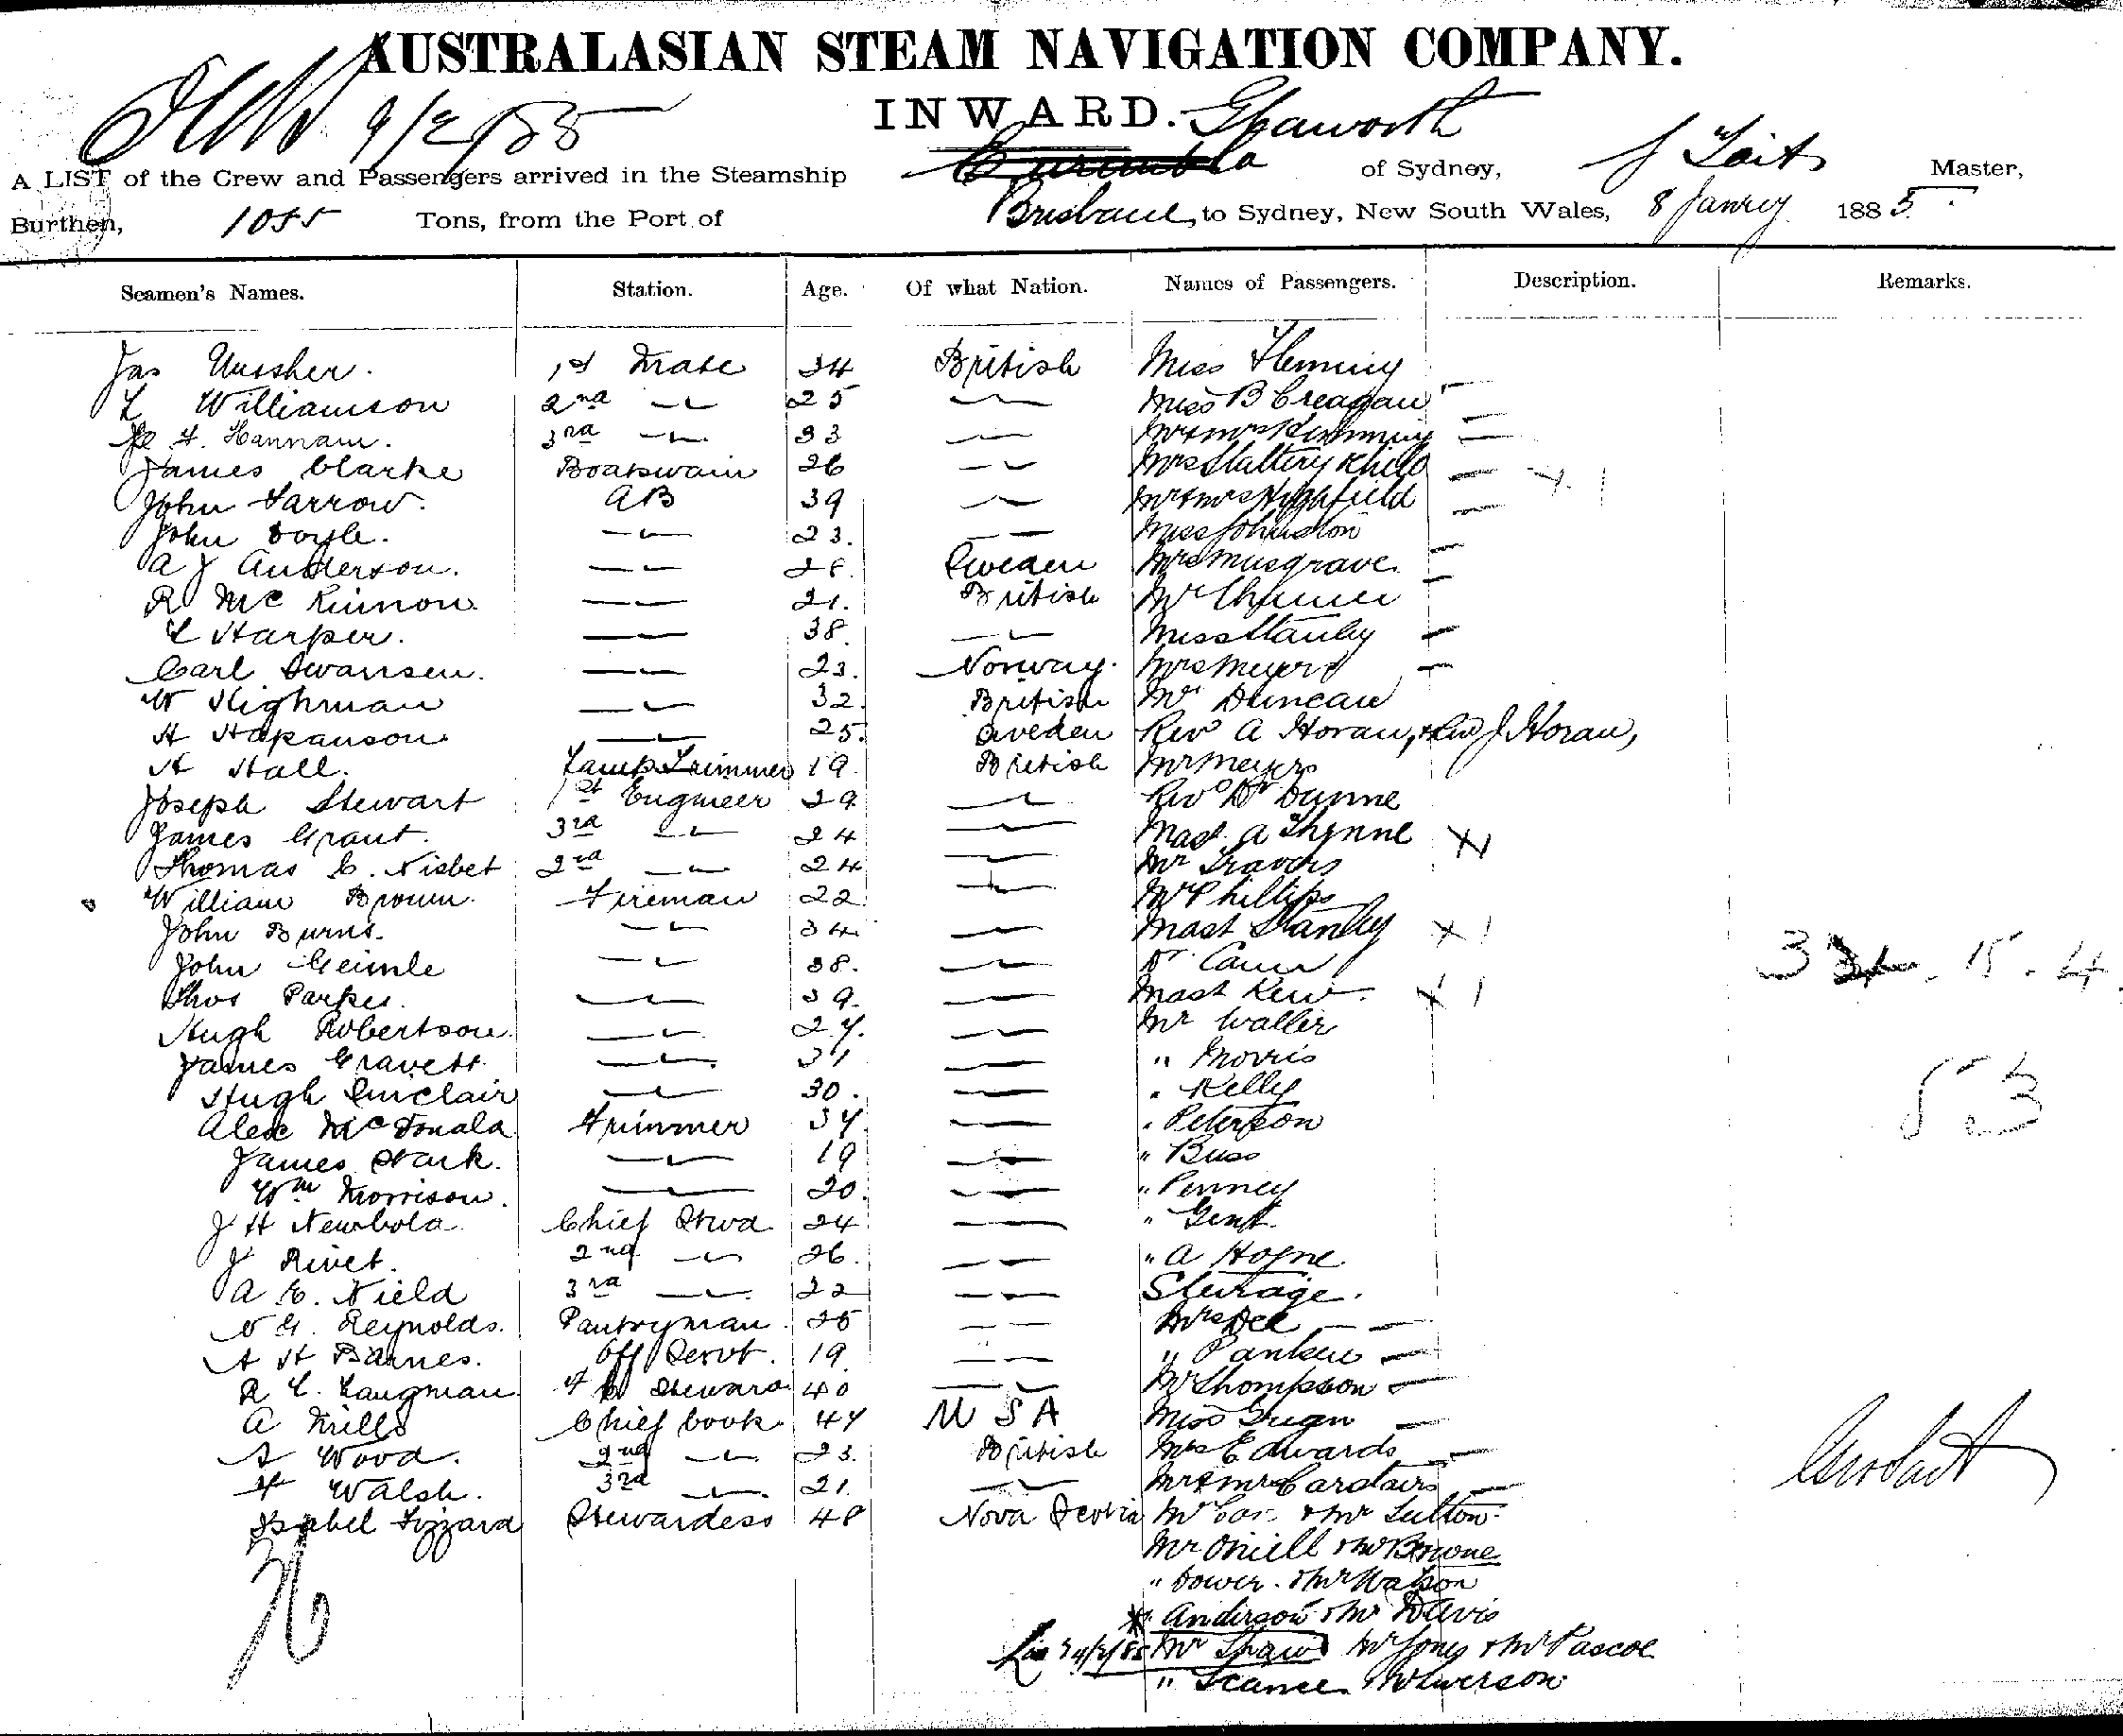 AUSTRALASIAN STEAM NAVIGATION COMPANY.
9/2/85
INWARD. Egmont
A LIST of the Crew and Passengers arrived in the Steamship of Sydney, J Tait Master,
Burthen, 1055 Tons, from the Port of Brisbane, to Sydney, New South Wales, 8 Janry 1885.
Seamen's Names. Station. Age. Of what Nation. Names of Passengers. Description. Remarks.
Jas Ussher. 1st Mate 34 British Miss Fleming
L Williamson 2nd 25 Miss B Creagan
Hannam. 3rd 33
James Clarke Boatswain 26 Mrs Slattery & child
John Farrow. AB 39 Mr & Mrs Highfield
John Doyle. 23. Miss Johnston
A J Anderson. 28. Sweden Mrs Musgrave.
R McKinnon. 21. British Mr
L Harper. 38. Miss Stanley
Carl Swansen. 23. Norway. Mrs Meyers
W Highman 32. British Mr Duncan
H Hakanson 25. Sweden Rev A Horan, & Rev J Horan,
H Hall. Lamp Trimmer 19 British Mr Meyers
Joseph Stewart 1st Engineer 29 Revd Dr Dunne
James Grant. 3rd 24 Mast. A Thynne
Thomas C. Nisbet 2nd 24 Mr Travers
William Brown. Fireman 22 Mr Phillips
John Burns. 34 Mast Stanley
John 38. Dr
Thos Parkes. 39. Mast Kew. 3 15.4
Hugh Robertson. 27. Mr Waller
James Gravett 31 " Morris
Hugh Sinclair 30. " Kelly 53
Alex McDonald Trimmer 37 " Peterson
James Stark. 19 " Buss
Wm Morrison. 20. " Penney
J H Newbold Chief Stwd 24 " Gent.
J Rivet. 2nd 26. " A Hogne.
A E. Nield 3rd 22 Steerage.
Reynolds. Pantryman 25 Mrs Dee
A H Barnes. Off Servt. 19 "
R C. Langman F C Steward 40 Mr Thompson
A Mills Chief Cook 47 U S A Miss
Wood. 2nd 23. British Mrs Edwards
Walsh. 3rd 21. Mr & Mrs Carstairs
Isabel Fizzard Stewardess 48 Nova Scotia Mr & Mr Sutton.
Mr Oniell & Mr Browne
" Dower. & Mr Watson
" Anderson & Mr Davis
Mr Shaw Mr Jones & Mr Pascoe
36